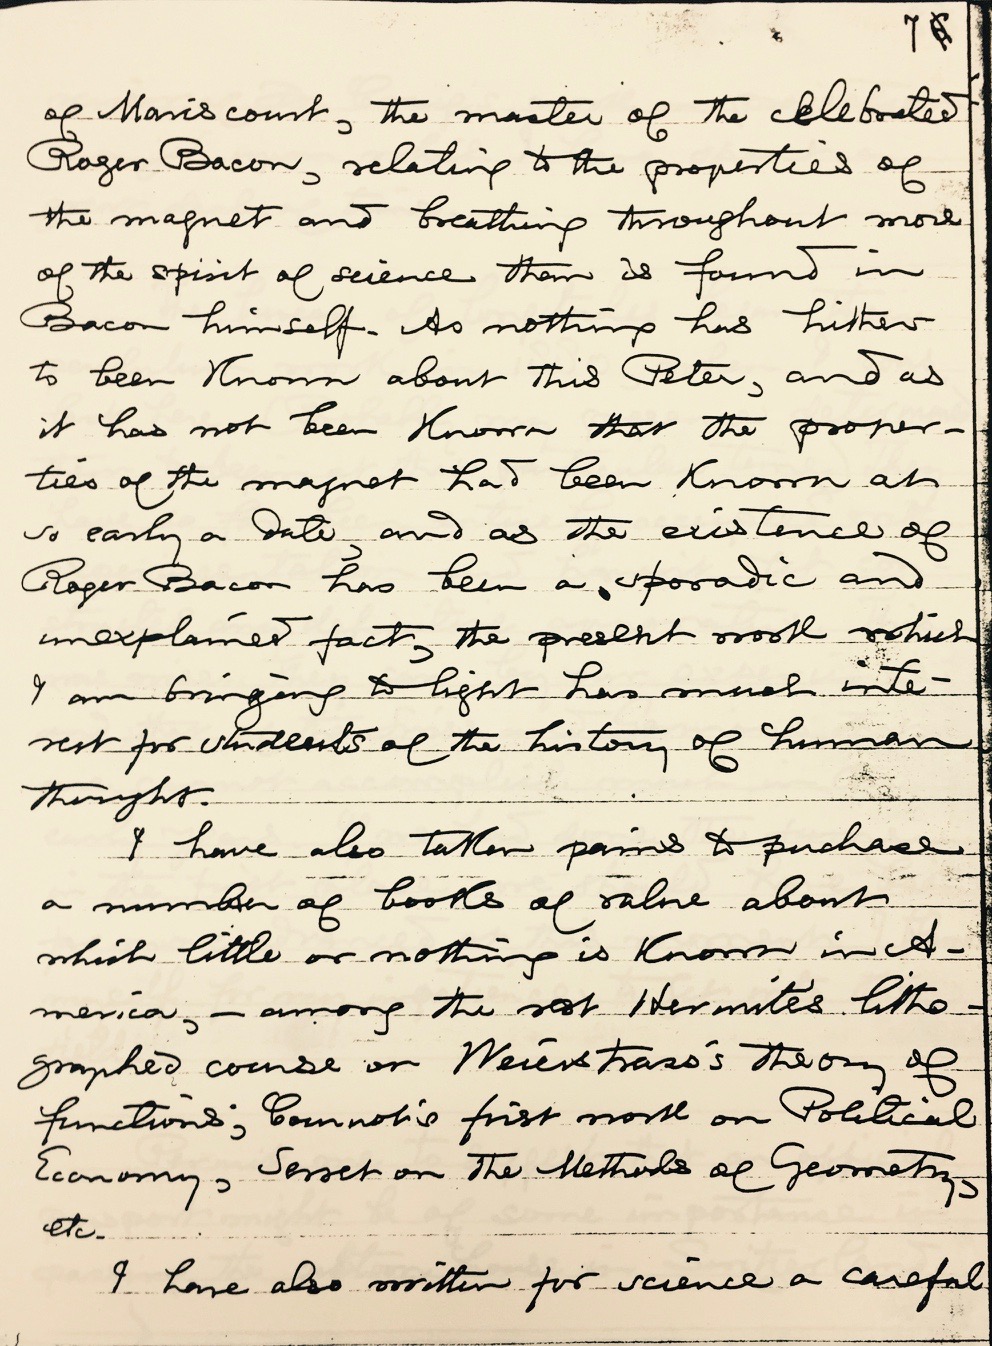 7
of Mariscourt, the master of the celebrated
Roger Bacon, relating to the properties of
the magnet and breathing throughout more
of the spirit of science than is found in
Bacon himself. As nothing has hither
to been known about this Peter, and as
it has not been known that the proper-
ties of the magnet had been known at
so early a date, and as the existence of
Roger Bacon has been a sporadic and
unexplained fact, the present work which
I am bringing to light has much inte-
rest for students of the history of human
thought.
I have also taken pains to puchase
a number of books of value about
which little or nothing is known in A-
merica, - among the rest Hermites litho-
graphed course on Weierstrass's theory of
functions; Cournot's first work on Political
Economy, Serret on the Methods of Geometry,
etc.
I have also written for science a careful